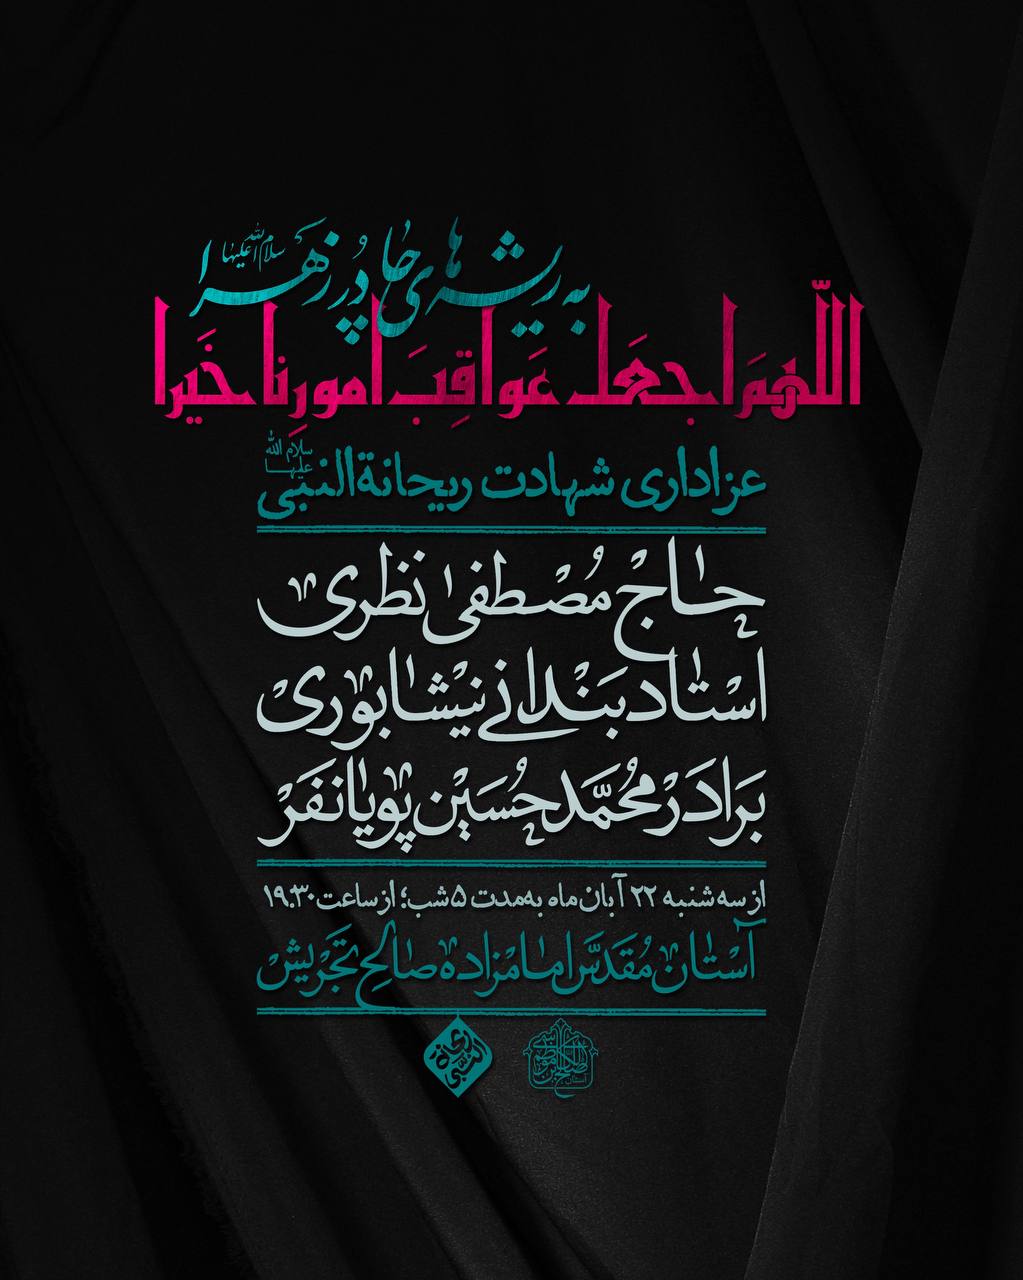 به ریشه‌های چادر زهرا سلام الله علیها
اللّهمَ اجعَل عَواقِبَ امورِنا خَیرا
عزاداری شهادت ریحانةالنبی سلام الله علیها
حاج مُصطفی نظری
استاد بَندانی نیشابوری
بَرادَر مُحمَّدحُسَین پویانفَر
از سه شنبه ۲۲ آبان ماه به مدت ۵ شب؛ از ساعت ۱۹:۳۰
آستان مُقدَّس امامزاده صالح تَجریش
ریحانة النبی
آستان صالح بن موسی